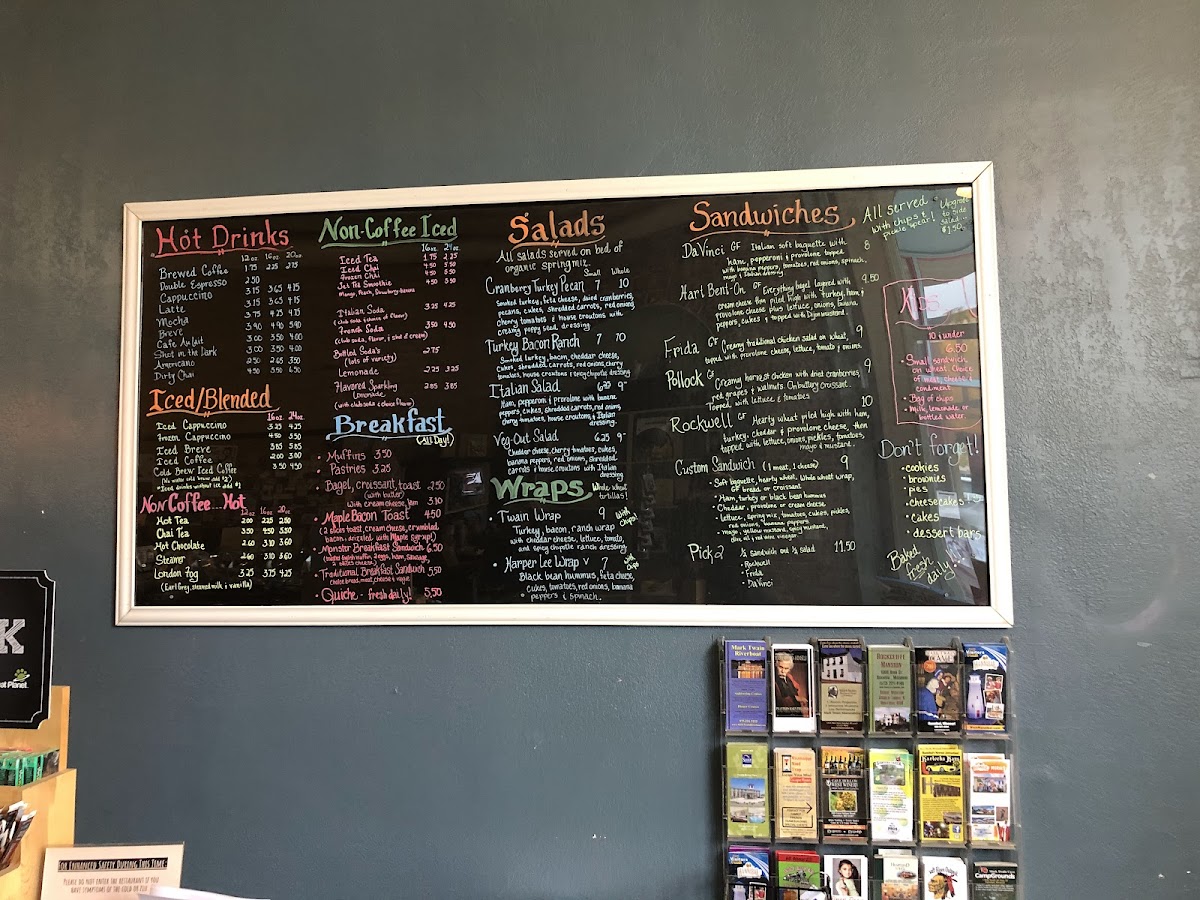 Hot Drinks
12 oz. 16 oz. 20 oz.
Brewed Coffee 1.75 2.25 2.75
Double Espresso 2.50
Cappuccino 3.15 3.65 4.15
Latte 3.15 3.65 4.15
Mocha 3.75 4.25 4.75
Breve 3.90 4.90 5.90
Cafe Aulait 3.00 3.50 4.00
Shot in the Dark 3.00 3.50 4.00
Americano 2.50 3.00 3.50
Dirty Chai 4.50 5.50 6.50
Iced/Blended
16 oz. 24 oz.
Iced Cappuccino 3.25 4.25
Frozen Cappuccino 4.50 5.50
Iced Breve 3.85 5.85
Iced Coffee 2.00 3.00
Cold Brew Iced Coffee 3.50 4.50
Non Coffee...Hot
12 oz. 16 oz. 20 oz.
Hot Tea 2.00 2.25 2.50
Chai Tea 3.50 4.50 5.50
Hot Chocolate 2.60 3.10 3.60
Steamer 2.60 3.10 3.60
London Fog 3.25 3.75 4.25
(Earl Grey, steamed milk & vanilla)
Non-Coffee Iced
16 oz. 24 oz.
Iced Tea 1.75 2.25
Iced Chai 4.50 5.50
Frozen Chai 4.50 5.50
Jet Tea Smoothie 4.50 5.50
Mango, Peach, Strawberry-banana
Italian Soda 3.25 4.25
(club soda & choice of flavor)
French Soda 3.50 4.50
(club soda, flavor, & shot of cream)
Bottled Soda's 2.75
(lots of variety)
Lemonade 2.25 3.25
Flavored Sparkling
Lemonade 2.85 3.85
(with club soda & choice flavor)
Breakfast
(All Day!)
• Muffins 3.50
• Pastries 3.25
• Bagel, croissant, toast 2.50
(with butter)
with cream cheese, jam 3.10
• Maple Bacon Toast 4.50
(2 slices toast, cream cheese, crumbled
bacon & drizzled with Maple Syrup!)
• Monster Breakfast Sandwich 6.50
2 slices cheese)
• Traditional Breakfast Sandwich 5.50
choice bread, meat, cheese & egg
• Quiche - fresh daily! 5.50
Salads
All salads served on bed of
organic spring mix.
Small Whole
Cranberry Turkey Pecan 7 10
Smoked turkey, feta cheese, dried cranberries,
pecans, cukes, shredded carrots, red onion,
cherry tomatoes & house croutons with
creamy poppy seed dressing
Turkey Bacon Ranch 7 10
Smoked turkey, bacon, cheddar cheese,
cukes, shredded carrots, red onions, cherry
tomatoes, house croutons & spicy chipotle dressing
Italian Salad 6.25 9-
Ham, pepperoni & provolone with banana
peppers, cukes, shredded carrots, red onions,
cherry tomatoes, house croutons & Italian
dressing.
Veg-Out Salad 6.25 9-
Cheddar cheese, cherry tomatoes, cukes,
banana peppers, red onions, shredded
carrots & house croutons with Italian
dressing
Wraps
Whole wheat
tortillas!
• Twain Wrap 9 With Chips!
Turkey, bacon, ranch wrap
with cheddar cheese, lettuce, tomato,
and spicy chipotle ranch dressing
• Harper Lee Wrap v 7 With Chips
Black bean hummus, feta cheese,
cukes, tomatoes, red onions, banana
peppers & spinach.
Sandwiches
All served
with chips &
pickle spear!
Upgrade
to side
salad...
$1.50
DaVinci GF Italian soft baguette with 8
ham, pepperoni & provolone topped
with banana peppers, tomatoes, red onions, spinach,
mayo & Italian dressing
Hart Bent-On GF Everything bagel layered with 9.50
cream cheese then piled high with turkey, ham &
provolone cheese plus lettuce, onions, banana
peppers, cukes & topped with Dijon mustard.
Frida GF Creamy traditional chicken salad on wheat, 9
topped with provolone cheese, lettuce, tomato & onions.
Pollock GF Creamy harvest chicken with dried cranberries, 9
red grapes & walnuts. On buttery croissant.
Topped with lettuce & tomatoes
Rockwell GF Hearty wheat piled high with ham, 10
turkey, cheddar & provolone cheese, then
topped with lettuce, onions, pickles, tomatoes,
mayo & mustard.
Custom Sandwich (1 meat, 1 cheese) 9
• Soft baguette, hearty wheat, whole wheat wrap,
GF bread or croissant
• Ham, turkey or black bean hummus
• Cheddar, provolone or cream cheese
• Lettuce, spring mix, tomatoes, cukes, pickles,
red onions, banana peppers
• Mayo, yellow mustard, spicy mustard,
olive oil, red wine vinegar
Pick 2 ½ sandwich and ½ salad 11.50
• Rockwell
• Frida
• DaVinci
Kids
10 & under
6.50
• Small sandwich
on wheat. Choice
of meat, cheese &
condiment
• Bag of chips
• Milk, lemonade or
bottled water.
Don't forget!
• cookies
• brownies
• pies
• cheesecakes
• cakes
• dessert bars
Baked
fresh
daily.
K
at Planet.
For Enhanced Safety During This Time:
Please do not enter the restaurant if you
have symptoms of the cold or flu
Mark Twain
Riverboat
Rockcliffe
Mansion
Karlocks Kars
CampGrounds